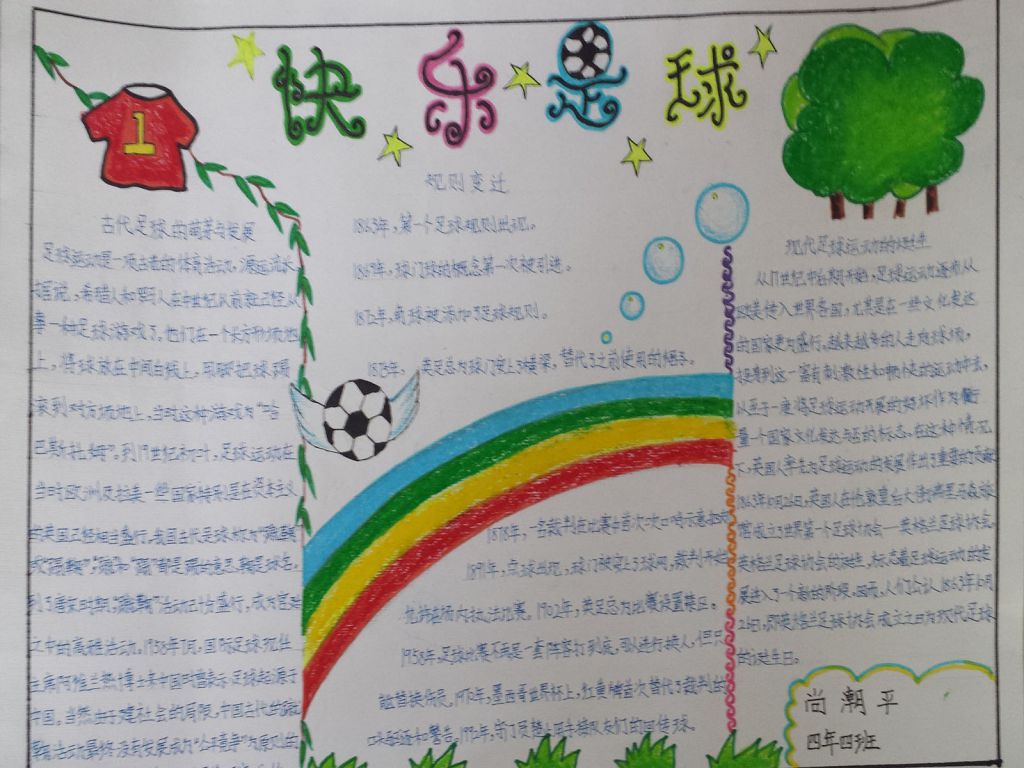 快乐足球
1
古代足球的萌芽与发展
足球运动是一项古老的体育活动，源远流长
据说，希腊人和罗马人在中世纪以前就已经从
事一种足球游戏了。他们在一个长方形场地
上，将球放在中间白线上，用脚把球踢
滚到对方场地上，当时这种游戏为“哈
巴斯托姆”。到19世纪初叶，足球运动在
当时欧洲及拉美一些国家特别是在资本主义
的英国已经相当盛行。我国古代足球称为“蹴鞠”
或“蹋鞠”，“蹴”和“蹋”都是踢的意思，鞠是球名。
到了唐宋时期，“蹴鞠”活动已十分盛行，成为宫廷
之中的高雅活动。1958年7月，国际足球现任
主席阿维兰热博士来中国时曾表示足球起源于
中国。当然由于封建社会的局限，中国古代的蹴
鞠活动最终没有发展成为“公平竞争”为原则的
规则变迁
1863年，第一个足球规则出现。
1869年，球门球的概念第一次被引进。
1872年，角球被添加了足球规则。
1875年，英足总为球门安上了横梁，替代了之前使用的绳子。
1878年，一名裁判在比赛中首次吹口哨示意
1891年，点球出现，球门被安上了球网，裁判开始
在场内执法比赛，1902年，英足总为比赛设置禁区。
1958年，足球比赛不再是一套阵容打到底，可以进行换人，但只
能替换伤员，1970年，墨西哥世界杯上，红黄牌首次替代了裁判的
口头和警告。1992年，守门员禁止用手接队友们的回传球。
现代足球运动的诞生
从17世纪中后期开始，足球运动逐渐从
欧美传入世界各国，尤其是在一些文化发达
的国家更为盛行。越来越多的人走向球场，
投身到这一富有刺激性和的运动中去，
以至于一度将足球运动开展的好坏作为衡
量一个国家文化发达与否的标志。在这种情况
下，英国人率先为足球运动的发展作出了重要的贡献
1863年10月26日，英国人在伦敦皇后大街弗里马森旅
馆成立了世界第一个足球协会——英格兰足球协会。
英格兰足球协会的诞生，标志着足球运动的发
展进入了一个新的阶段。因而，人们公认1863年10月
26日，即英格兰足球协会成立之日为现代足球
的诞生日。
尚潮平
四年四班